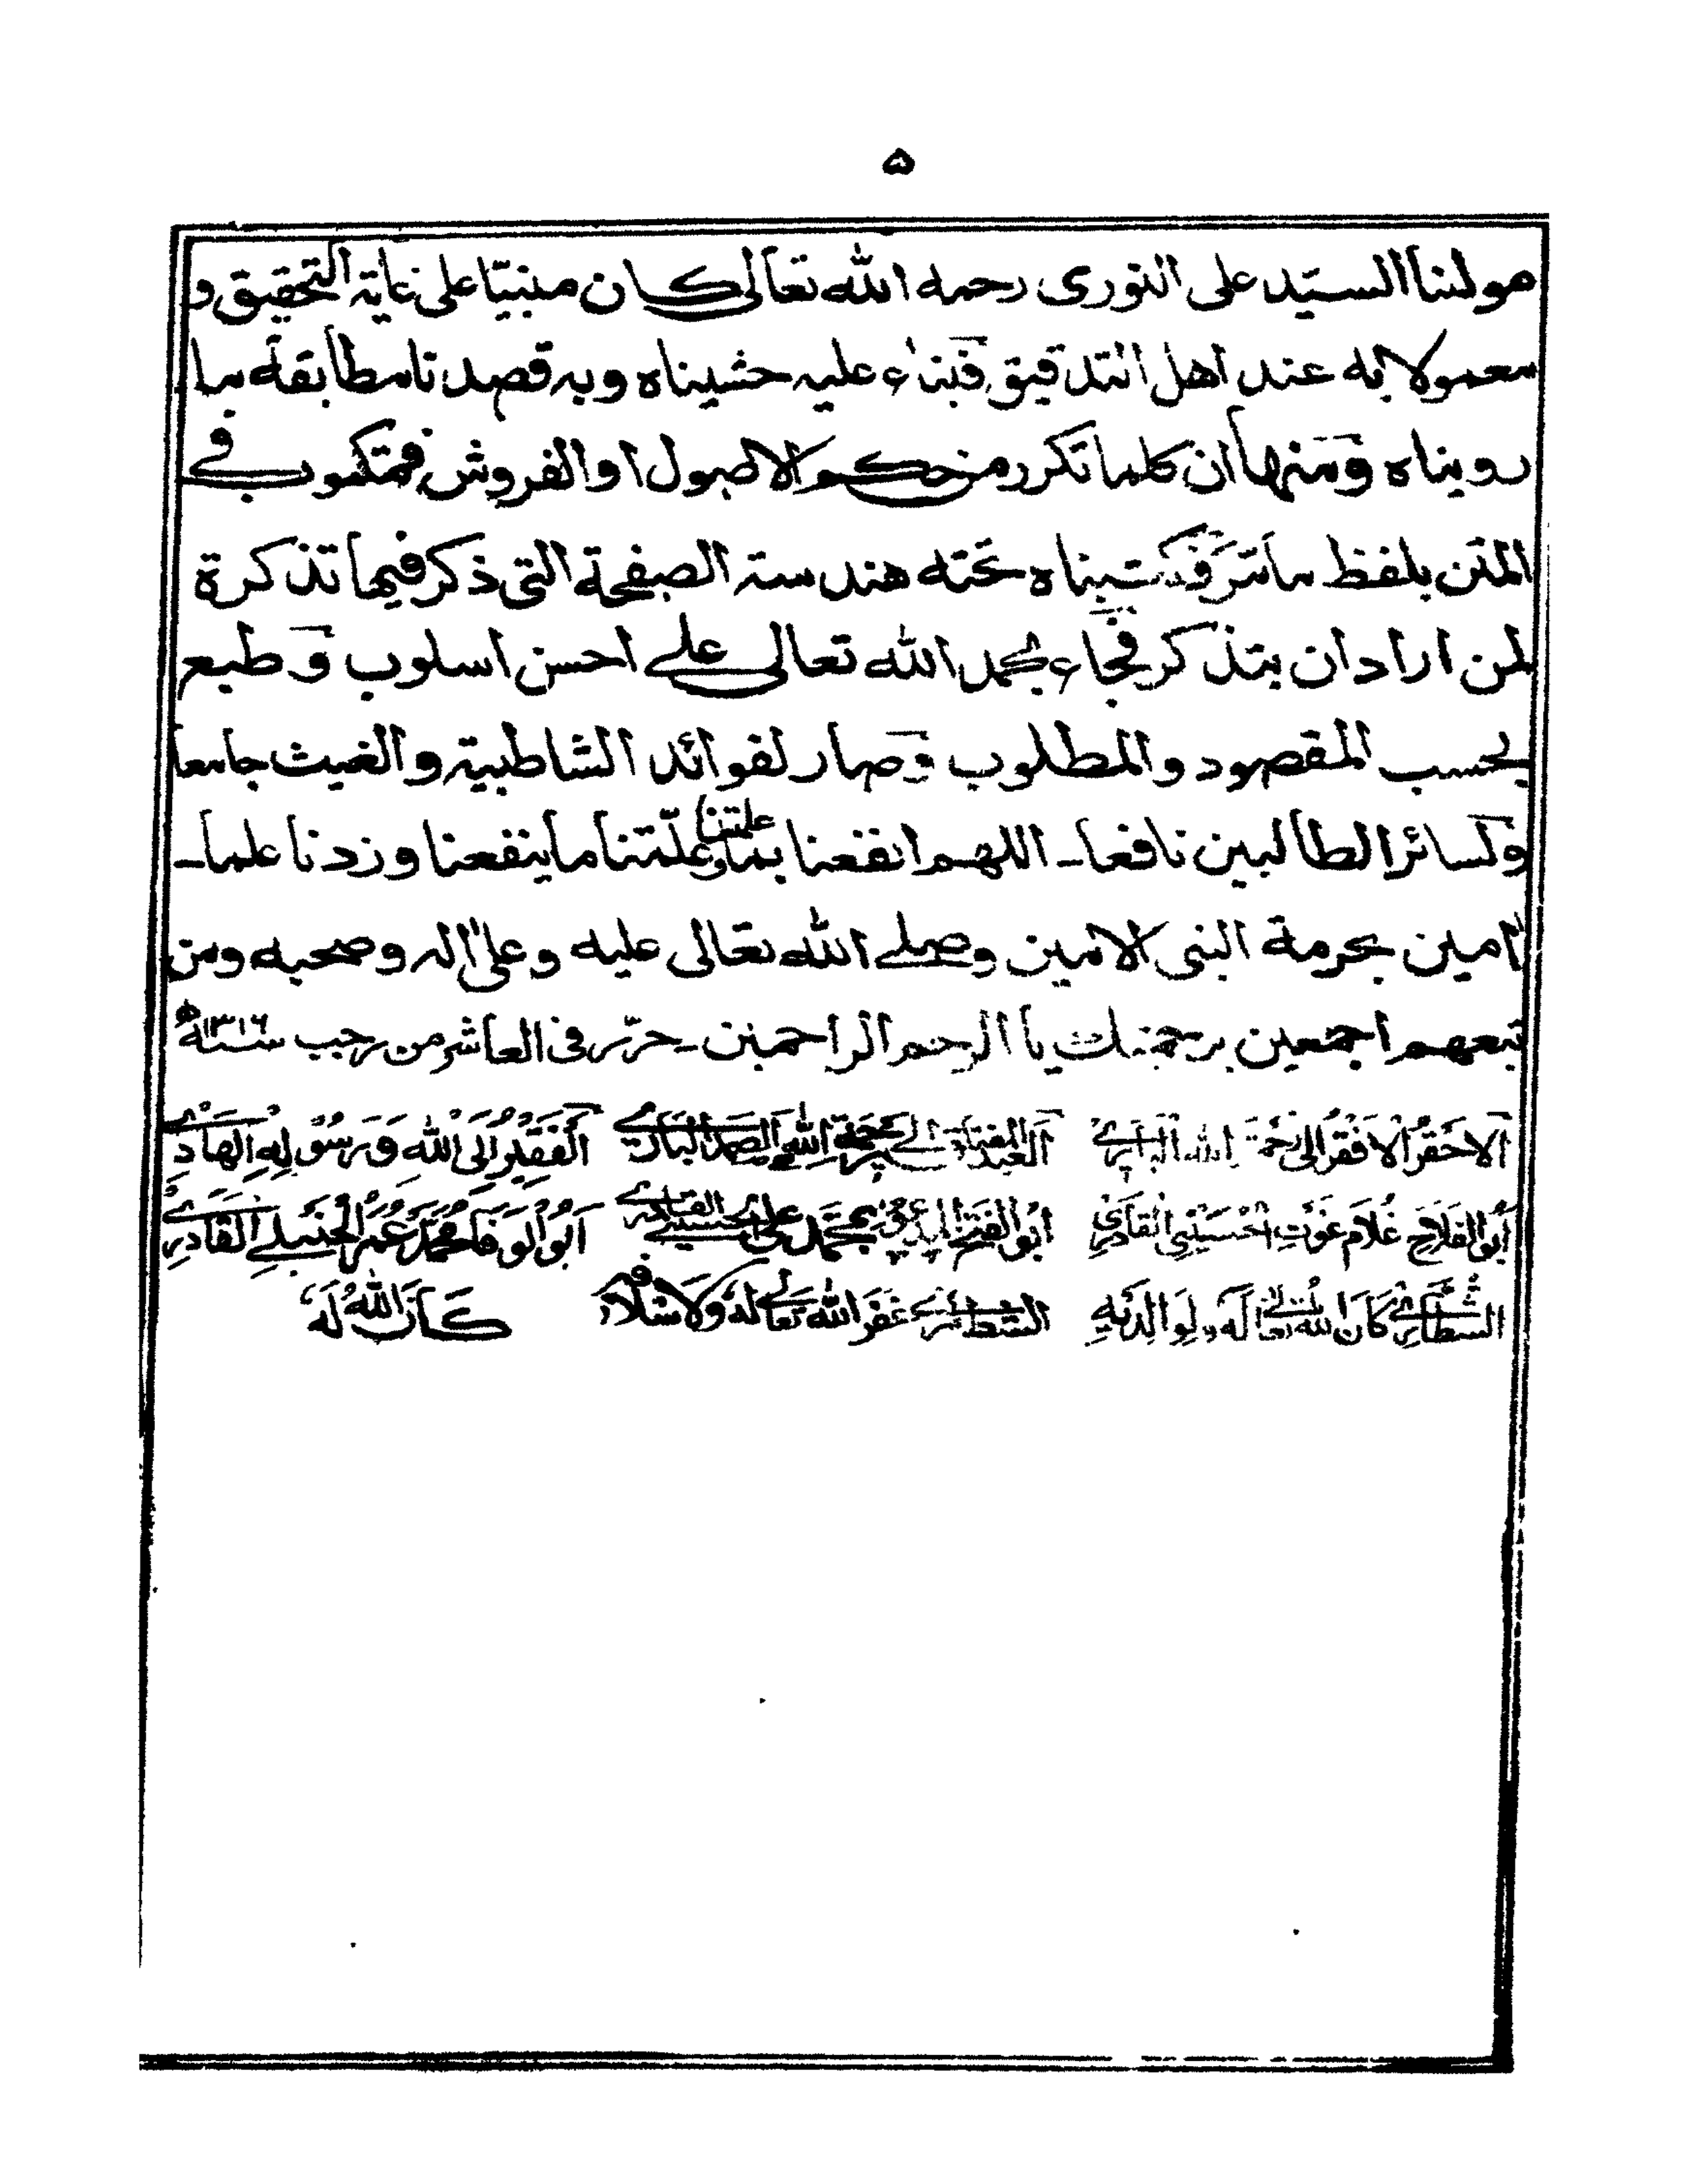 ۵
مولٰنا السيّد على النورى رحمه الله تعالى كان مبنيّا على غاية التحقيق و
معمولا به عند اهل التدقيق فبناء عليه حشيناه وبه قصدنا مطابقة ما
رويناه ومنها ان كلما تكرر من حكم الاصول او الفروش فمكتوب فى
المتن بلفظ ما مَرّ فكتبناه تحته هندسة الصفحة التى ذكر فيها تذكرة
لمن اراد ان يتذكر فجاء بحمد الله تعالى على احسن اسلوب وطبع
بحسب المقصود والمطلوب وصار لفوائد الشاطبية والغيث جامعا
ولسائر الطالبين نافعا ـ اللهم انفعنا بما علمتنا وعلّمنا ما ينفعنا وزدنا علما ـ
اٰمين بحرمة النبى الامين وصلى الله تعالى عليه وعلى اٰله وصحبه ومن
تبعهم اجمعين برحمتك يا ارحم الراحمين ـ حرّر فى العاشر من رجب سنة ۱۳۱۶ھ
اَلاحقَرُ الافْقَرُ الى رحمة الله البارى
ابُو الفلاح غُلام غوث الحُسينِى القادرى
الشطّارى كَانَ الله تعالى لَه ولِوَالِدَيْهِ
العَبْد المفتاق الى رحمة الله الصمد البارى
ابُو الفتح محمّد على الحسينى القادرى
الشطارى غَفَرَ الله تعالى له ولاسْلافه
اَلفَقِيرُ الَى الله وَرَسُوْلِهِ الهَادِى
اَبُو الْوَفَا محمّد عُمَر الحنبلى القادرى
كَانَ اللهُ لَهُ